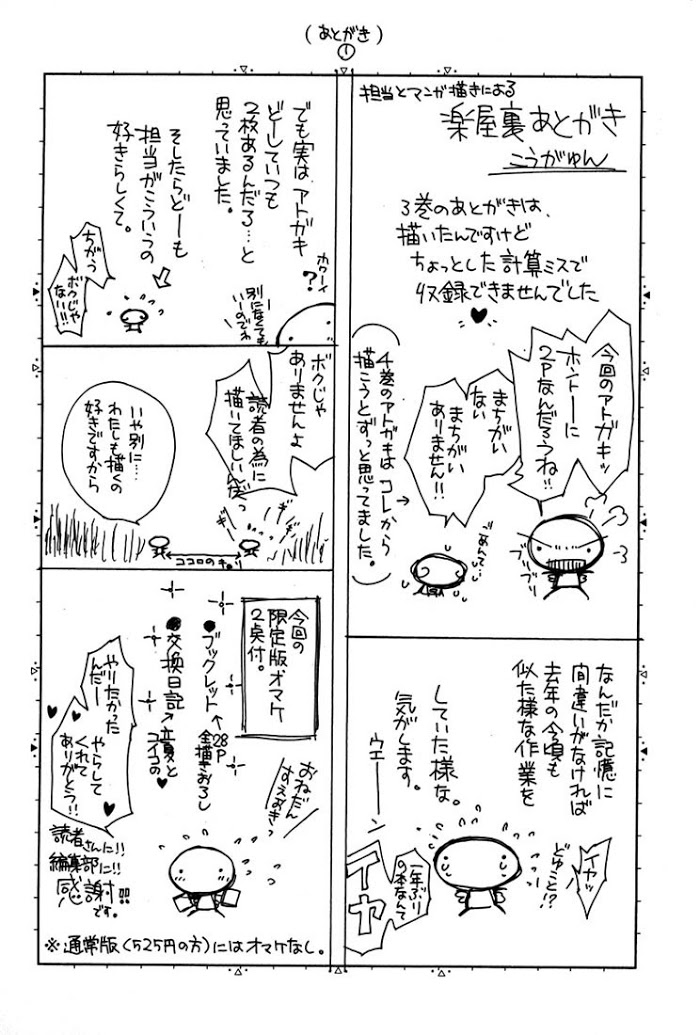 (あとがき)
①
担当とマンガ描きによる
楽屋裏あとがき
こうがゆん
3巻のあとがきは、
描いたんですけど
ちょっとした計算ミスで
収録できませんでした
♥
今回のアトガキッ
ホントーに
2Pなんだろうね!!
まちがい
ない
まちがい
ありません!!
ごめんて…
プリプリ
4巻のアトガキは コレから
描こうとずっと思ってました。
→
なんだか記憶に
間違いがなければ
去年の今頃も
似た様な作業を
していた様な。
気がします。
ウェーー
イヤッ
どゆこと!?
一年ぶり
の本なんて
イヤ
でも実は アトガキ
どーしていつも
2枚あるんだろ…と
思っていました。
ホワーイ
?
別になくても
いいのでわ
そしたらどーも
担当がこういうの
好きらしくて。
ちがう
ボクじゃ
ない!!
ボクじゃ
ありませんよ
読者の為に
描いてほしいんだっ
ぎぎ
いや別に…
わたしも描くの
好きですから
ココロのきょり
今回の
限定版オマケ
2点付。
●ブックレット
←28P
全描きおろし
●交換日記
→立夏と
コイコの
♥
おねだん
すえおきっ
やりたかった
んだー
やらして
くれて
ありがとう!!
読者さんに!!
編集部に!!
感謝です。!!
※通常版(525円の方)にはオマケなし。